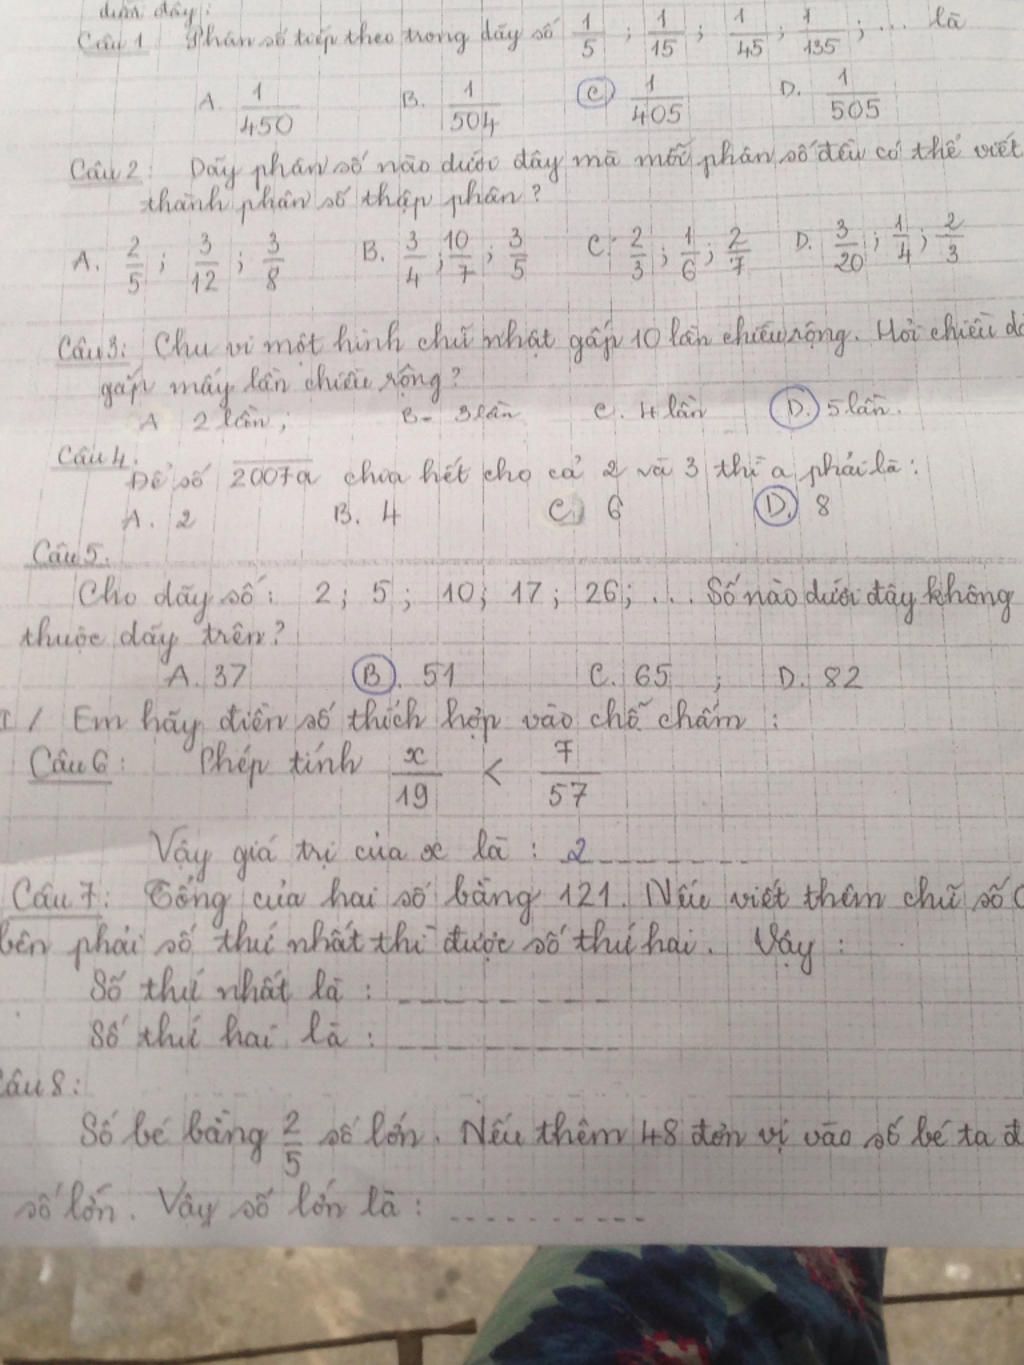 dưới đây:
Câu 1 Phân số tiếp theo trong dãy số 1/5 ; 1/15 ; 1/45 ; 1/135 ; ... là
A. 1/450 B. 1/504 C 1/405 D. 1/505
Câu 2: Dãy phân số nào dưới đây mà mỗi phân số đều có thể viết
thành phân số thập phân?
A. 2/5 ; 3/12 ; 3/8 B. 3/4 ; 10/7 ; 3/5 C. 2/3 ; 1/6 ; 2/7 D. 3/20 ; 1/4 ; 2/3
Câu 3: Chu vi một hình chữ nhật gấp 10 lần chiều rộng. Hỏi chiều dà
gấp mấy lần chiều rộng?
A 2 lần; B- 3 lần C. 4 lần D. 5 lần.
Câu 4.
Để số 2007a chia hết cho cả 2 và 3 thì a phải là:
A. 2 B. 4 C. 6 D. 8
Câu 5.
Cho dãy số: 2; 5; 10; 17; 26; ... Số nào dưới đây không
thuộc dãy trên?
A. 37 B. 51 C. 65 ; D. 82
I / Em hãy điền số thích hợp vào chỗ chấm:
Câu 6: Phép tính x/19 < 7/57
Vậy giá trị của x là: 2
Câu 7: Tổng của hai số bằng 121. Nếu viết thêm chữ số 0
bên phải số thứ nhất thì được số thứ hai. Vậy:
Số thứ nhất là:
Số thứ hai là:
Câu 8:
Số bé bằng 2/5 số lớn. Nếu thêm 48 đơn vị vào số bé ta đ
số lớn. Vậy số lớn là: ..........